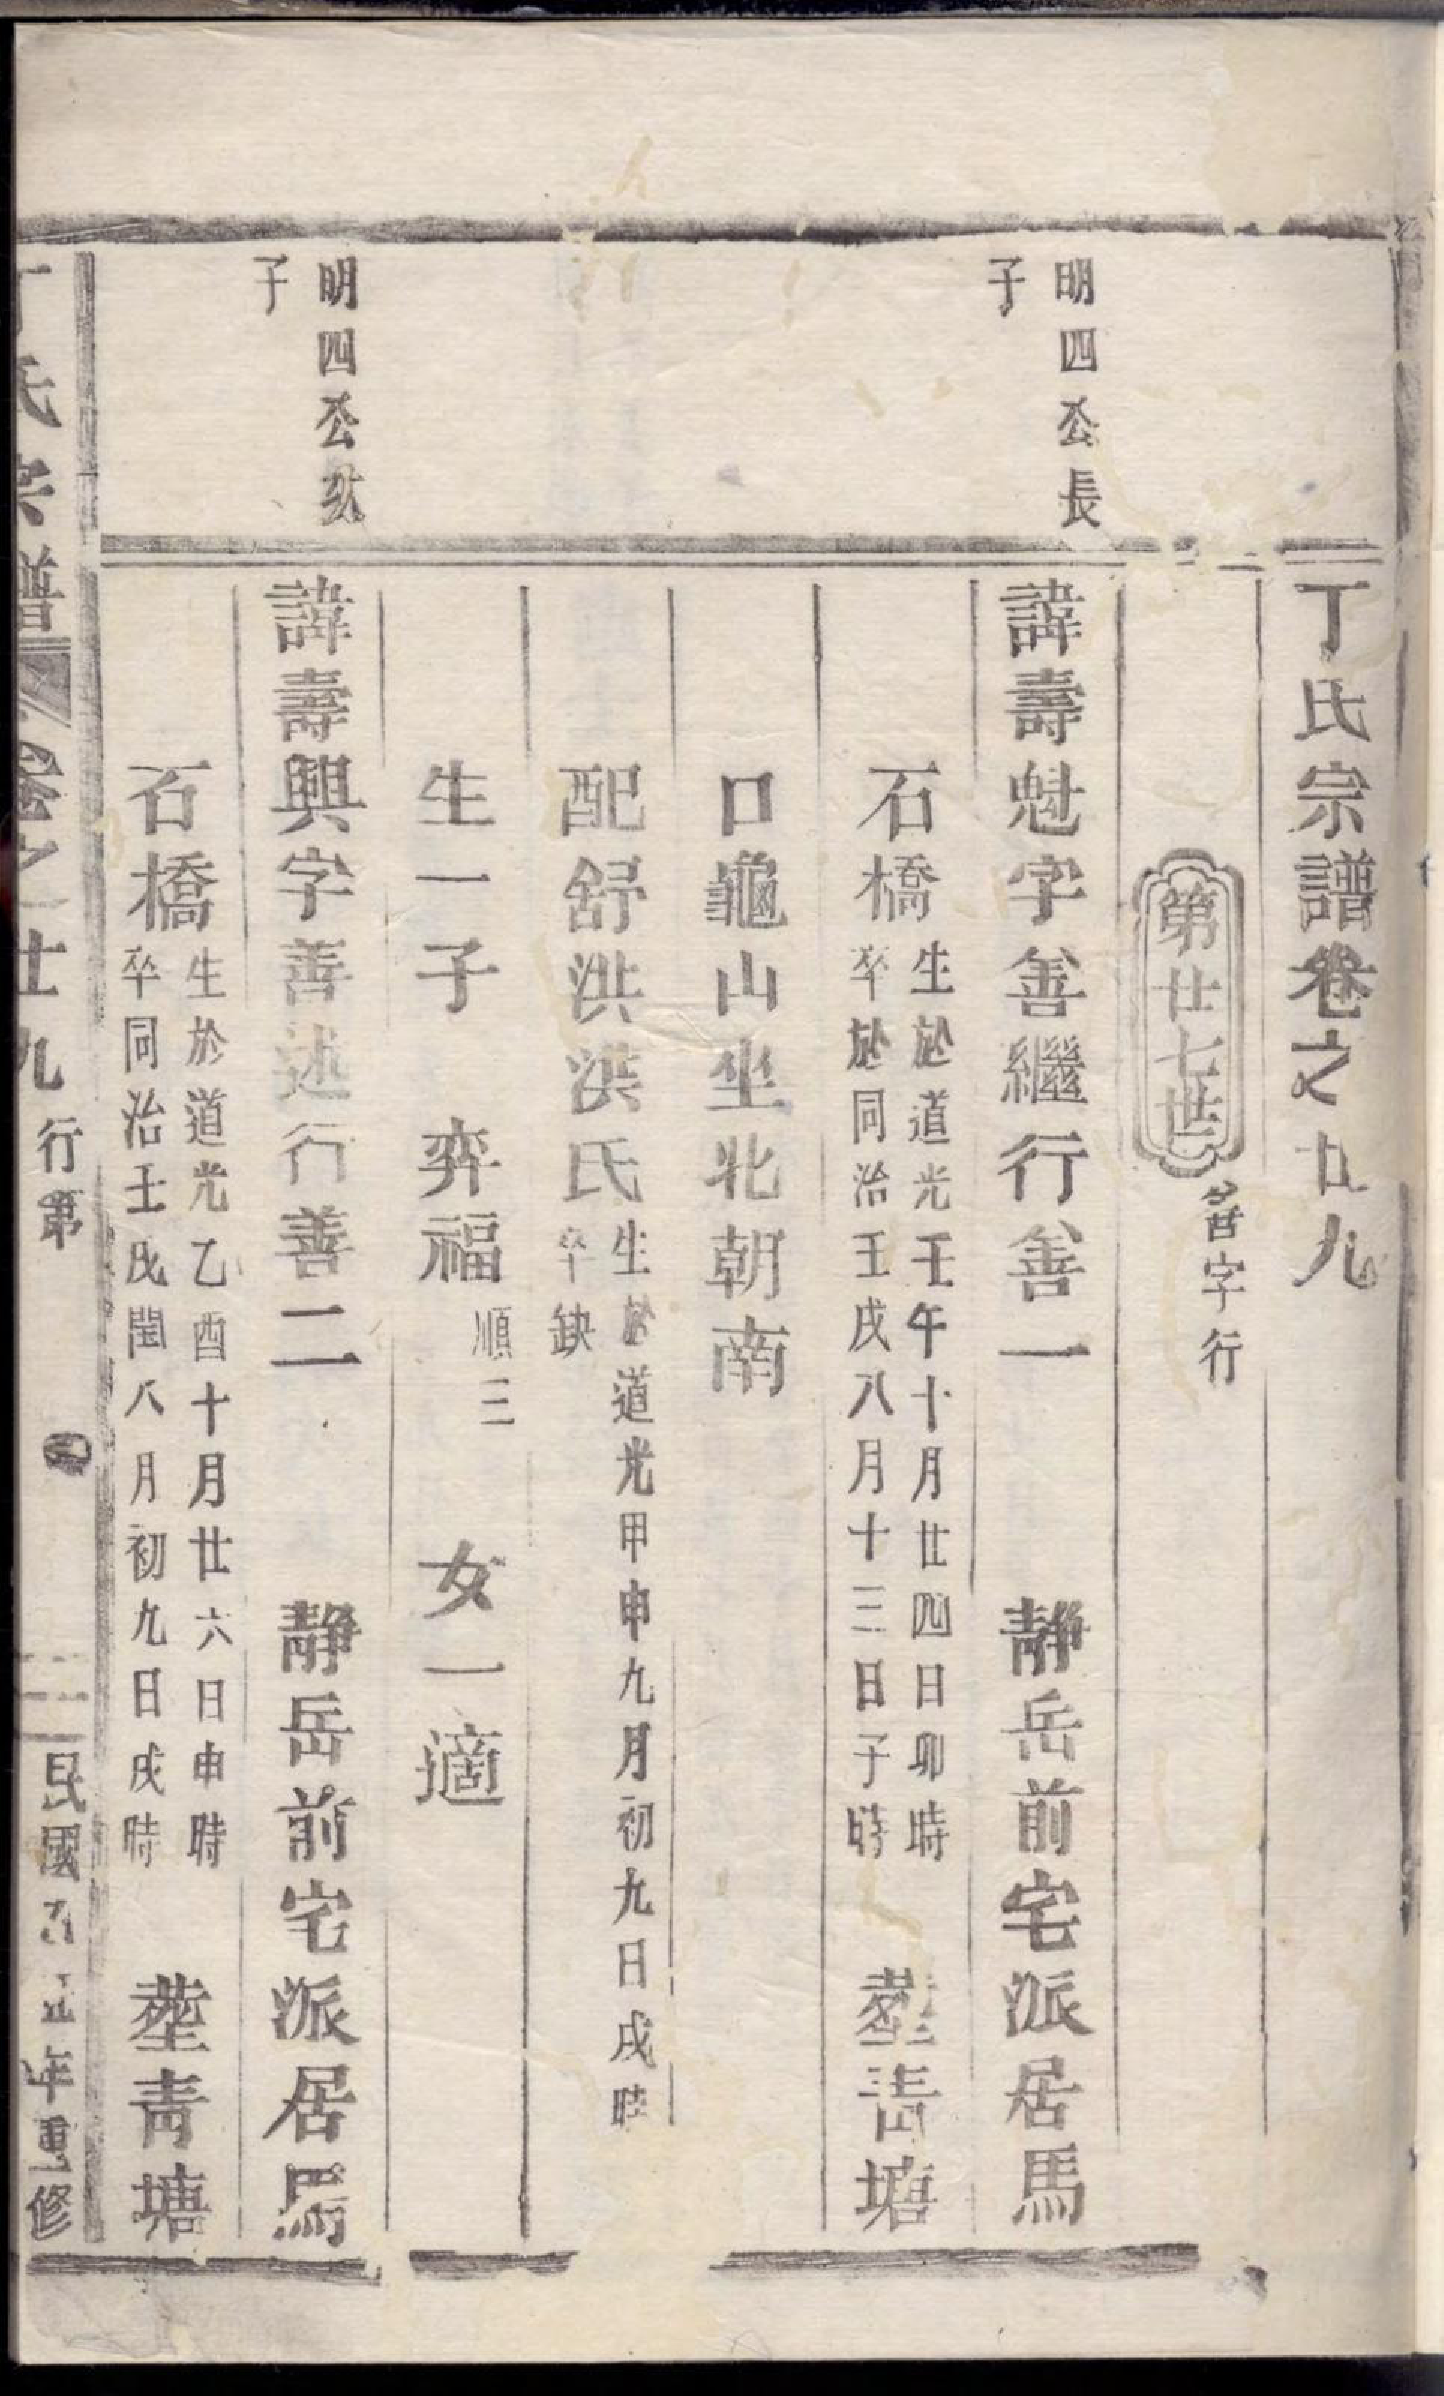 丁氏宗譜卷之廿九
第廿七世
善字行
明四公長
子
諱壽魁字善繼行善一　靜岳前宅派居馬
石橋
生於道光壬午十月廿四日卯時
卒於同治壬戌八月十三日子時
塟青塘
口龜山坐北朝南
配舒洪洪氏
生於道光甲申九月初九日戌時
卒缺
生一子　弈福
順三
女一適
明四公次
子
諱壽興字善述行善二　靜岳前宅派居馬
石橋
生於道光乙酉十月廿六日申時
卒同治壬戌閏八月初九日戌時
塟青塘
丁氏宗譜
卷之廿九
行第
民國 年重修